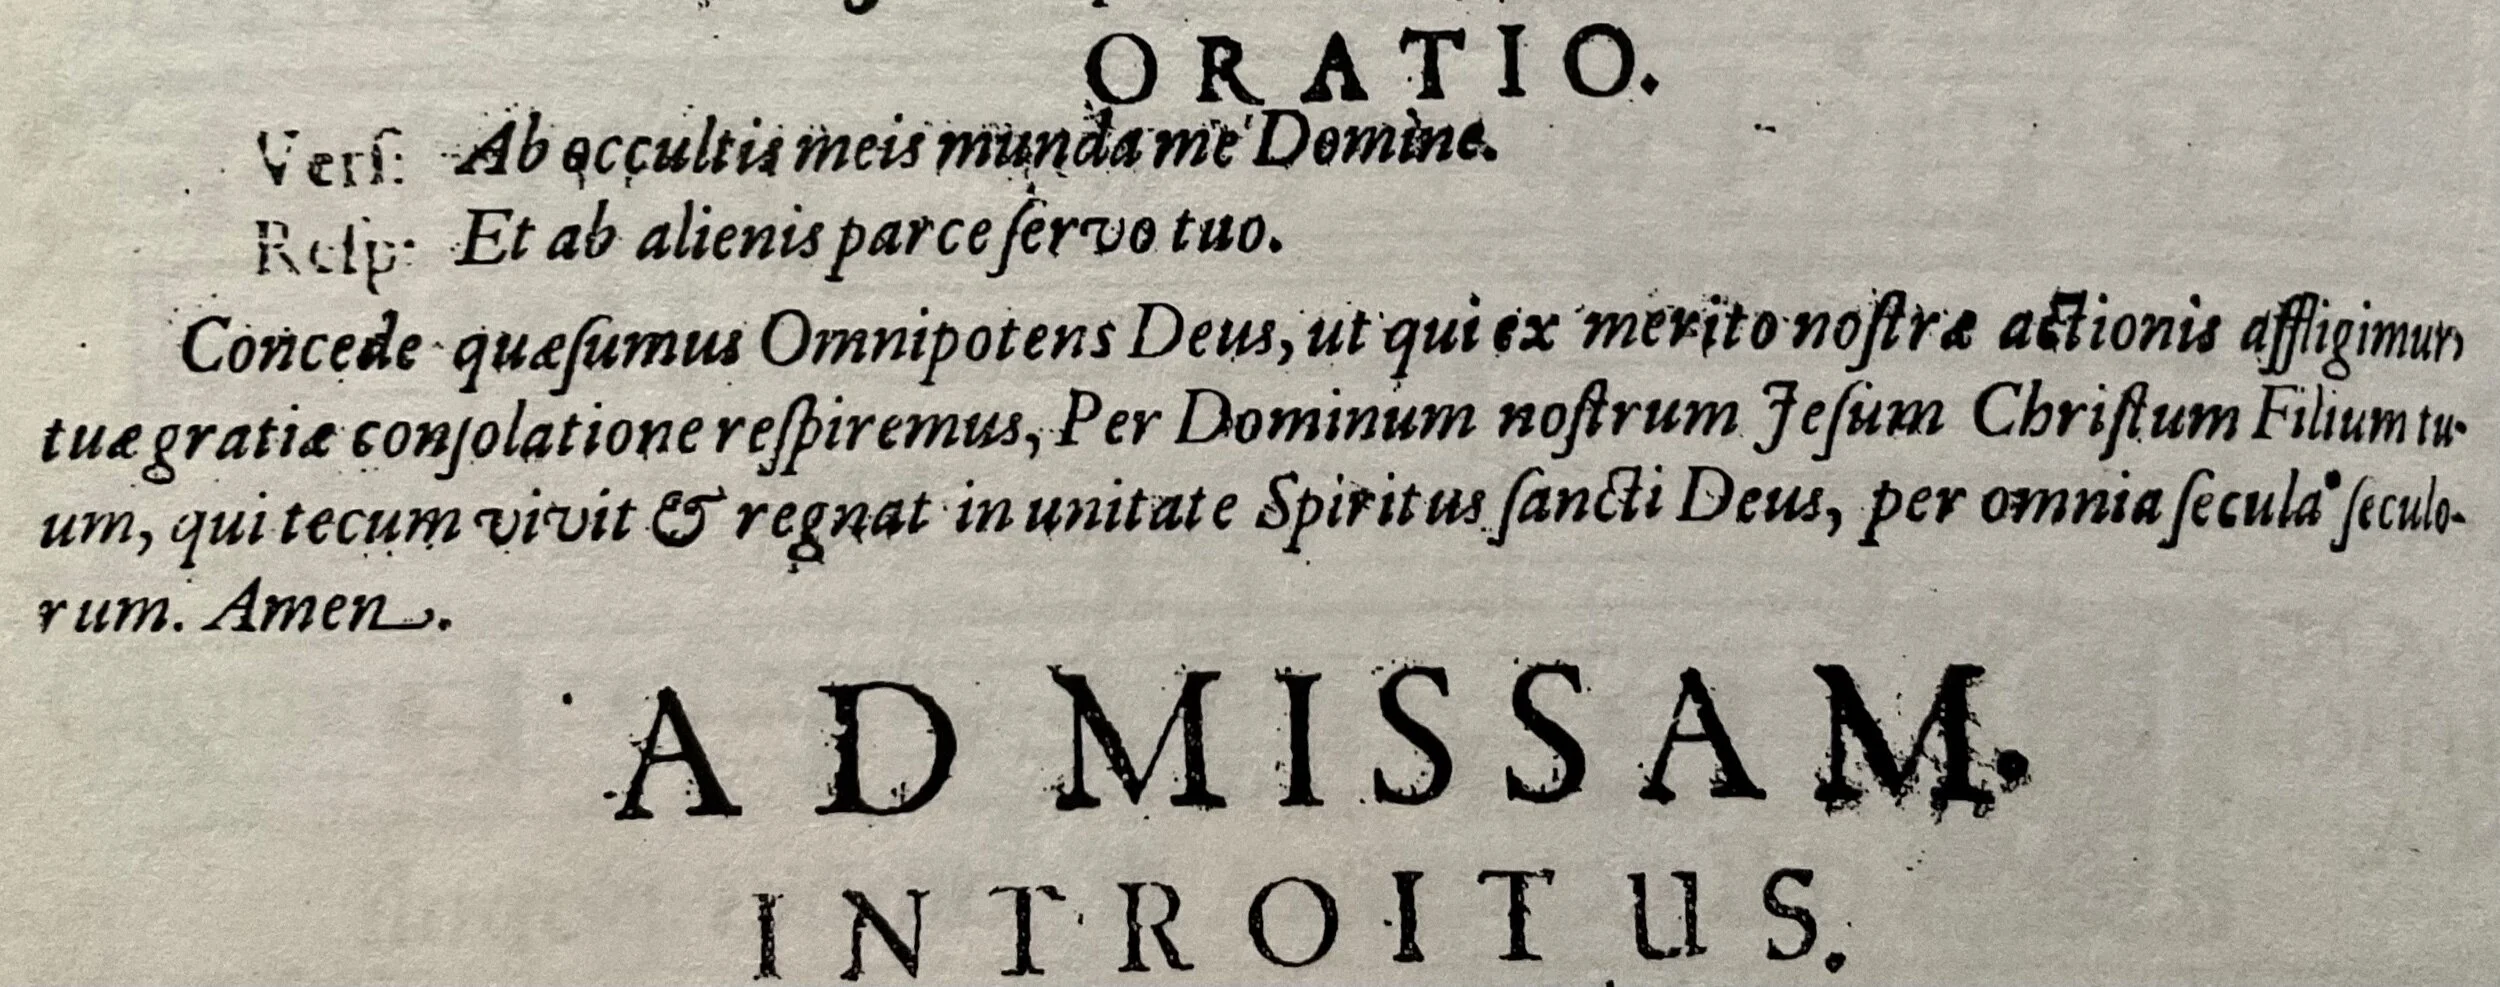 ORATIO.
Verſ: Ab occultis meis munda me Domine.
Reſp: Et ab alienis parce ſervo tuo.
Concede quæſumus Omnipotens Deus, ut qui ex merito noſtræ actionis affligimur,
tuæ gratiæ conſolatione reſpiremus, Per Dominum noſtrum Jeſum Chriſtum Filium tu-
um, qui tecum vivit & regnat in unitate Spiritus ſancti Deus, per omnia ſecula ſeculo-
rum. Amen.
AD MISSAM.
INTROITUS.